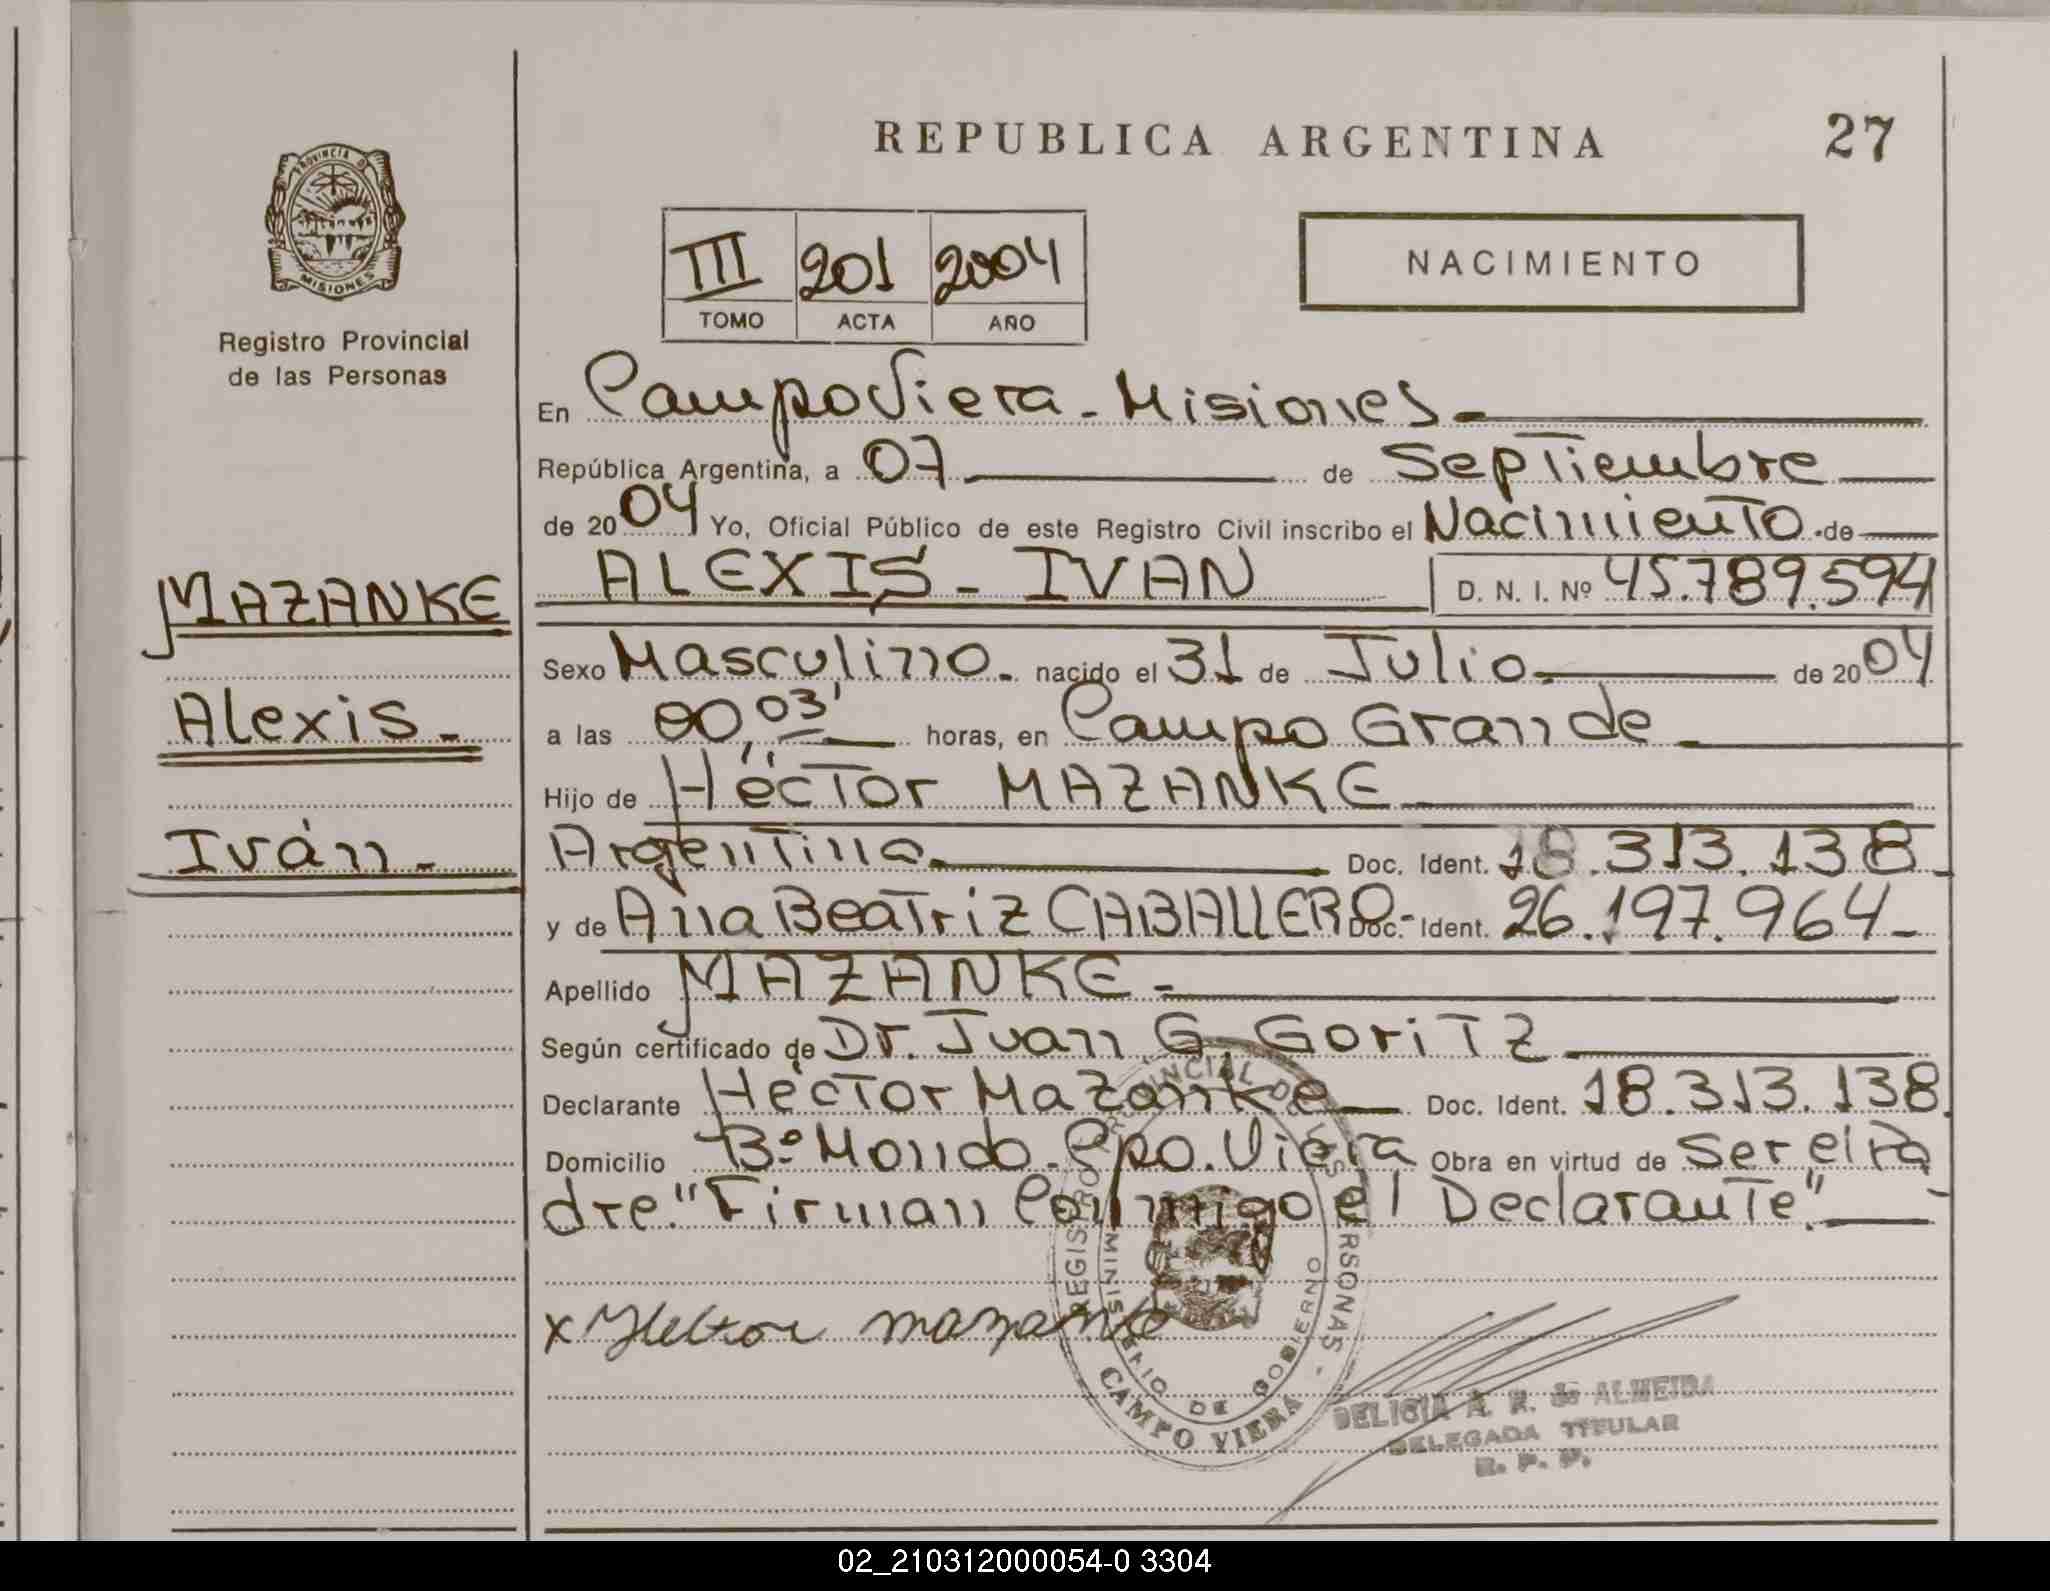 REPUBLICA ARGENTINA
27
PROVINCIA DE
MISIONES
Registro Provincial
de las Personas
III 201 2004
TOMO ACTA AÑO
NACIMIENTO
En Campo Viera - Misiones -
República Argentina, a 07 de Septiembre
de 2004 Yo, Oficial Público de este Registro Civil inscribo el Nacimiento de
MAZANKE
ALEXIS - IVAN D. N. I. Nº 45.789.594
Sexo Masculino. nacido el 31 de Julio. de 2004
Alexis -
a las 00,03' horas, en Campo Grande
Hijo de Héctor MAZANKE
Iván -
Argentino. Doc. Ident. 18.313.138 -
y de Ana Beatriz CABALLERO - Doc. Ident. 26.197.964 -
Apellido MAZANKE -
Según certificado de Dr. Juan G. Goritz
Declarante Héctor Mazanke Doc. Ident. 18.313.138.
Domicilio Bº Mondo. Cpo. Viera Obra en virtud de Ser el Pa
dre." Firman Conmigo el Declarante".
x Hector mazanke
REGISTRO PROVINCIAL DE LAS PERSONAS -
MINISTERIO DE GOBIERNO
CAMPO VIERA
DELICIA A. R. de ALMEIDA
DELEGADA TITULAR
R. P. P.
02_210312000054-0 3304